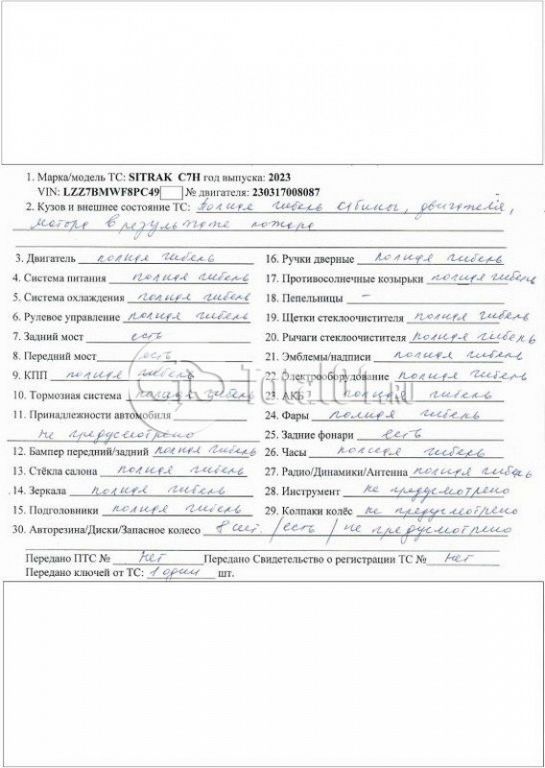 1. Марка/модель ТС: SITRAK C7H год выпуска: 2023
VIN: LZZ7BMWF8PC49 № двигателя: 230317008087
2. Кузов и внешнее состояние ТС: полная гибель кабины, двигателя,
мотора в результате пожара
3. Двигатель полная гибель
4. Система питания полная гибель
5. Система охлаждения полная гибель
6. Рулевое управление полная гибель
7. Задний мост есть
8. Передний мост есть
9. КПП полная гибель
10. Тормозная система полная гибель
11. Принадлежности автомобиля
не предусмотрено
12. Бампер передний/задний полная гибель
13. Стёкла салона полная гибель
14. Зеркала полная гибель
15. Подголовники полная гибель
16. Ручки дверные полная гибель
17. Противосолнечные козырьки полная гибель
18. Пепельницы –
19. Щетки стеклоочистителя полная гибель
20. Рычаги стеклоочистителя полная гибель
21. Эмблемы/надписи полная гибель
22. Электрооборудование полная гибель
23. АКБ полная гибель
24. Фары полная гибель
25. Задние фонари есть
26. Часы полная гибель
27. Радио/Динамики/Антенна полная гибель
28. Инструмент не предусмотрено
29. Колпаки колёс не предусмотрено
30. Авторезина/Диски/Запасное колесо 8 шт. / есть / не предусмотрено
Передано ПТС № нет Передано Свидетельство о регистрации ТС № нет
Передано ключей от ТС: 1 один шт.
Total01.ru